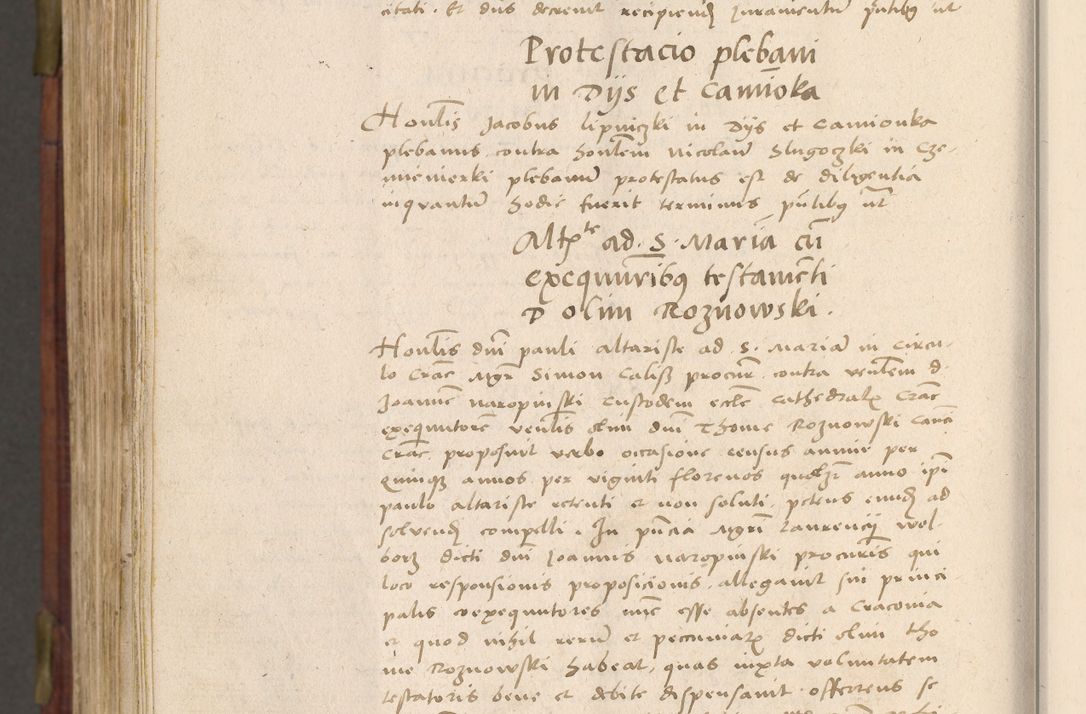 citati. Et dns decrevit recipiend Juramentu pntibus ut
Protestacio plebani
in Dijs et Camiōka
Honlis Jacobus lipniczki in Dijs et Camionka
plebanus contra honlem Nicolau Slugoczki in Cze-
mnenierki plebanum protestatus est de diligentia
inquantu hodie fuerit terminus pntibus ut
Altte ad S. Mariā cū
exequuribus testamēti
D olim Roznowski.
Honlis dni pauli altariste ad S. Maria in Circu-
lo Crac Mgr Simon Calisz procur contra venlem d.
Joanne Naropinski Custodem eccle Cathedralis Crac
exequutore venlis olim dni Thome Roznowski Canci
Crac, proposuit verbo occasione census annui per
quinque annos per viginti florenos quolzt anno ipi
paulo altariste retenti et non soluti, petens eund ad
solvend compelli. In pncia Mgri Laurencij Wol-
borz dicti dni Joannis Naropinski procuris qui
loco responsionis proposicionis allegavit sui princi
palis coexequutores nuc esse absentes a Cracovia
et quod nihil reru et pecuniar dicti olim Tho
me Roznowski habeat, quas iuxta voluntatem
testatoris bene et debite dispensavit offerens se